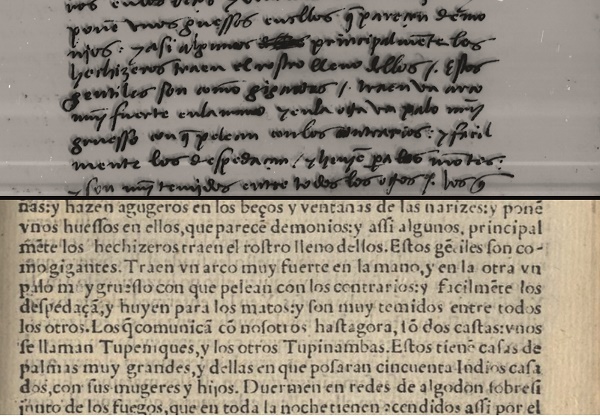 pone vnos guessos enellos q̃ parecen demo
nios: y asi algunos principalmẽte los
hechizeros traen el rostro lleno dellos /. Estos
gentiles son como gigantes /. traen vn arco
muy fuerte en la mano y en la otra vn palo muy
gruesso con q̃ pelean con los contrarios: y facil
mente los despedaçan / y huyẽ pa los mõtes:
y son muy temidos entre todos los otros /. los q̃
nas:y hazen agugeros en los beços y ventanas de las narizes:y ponẽ
vnos huessos en ellos,que parecẽ demonios:y assi algunos, principal
mẽte los hechizeros traen el rostro lleno dellos. Estos gẽtiles son co-
mo gigantes. Traen vn arco muy fuerte en la mano,y en la otra vn
palo muy gruesso con que pelean con los contrarios:y facilmẽte los
despedaçã,y huyen para los matos:y son muy temidos entre todos
los otros. Los q̃ comunicã cõ nosotros hastagora, sõ dos castas: vnos
se llaman Tupeniques,y los otros Tupinambas. Estos tienẽ casas de
palmas muy grandes,y dellas en que posaran cincuenta Indios casa
dos,con sus mugeres y hijos. Duermen en redes de algodon sobresi
junto de los fuegos,que en toda la noche tienen acendidos assi por el